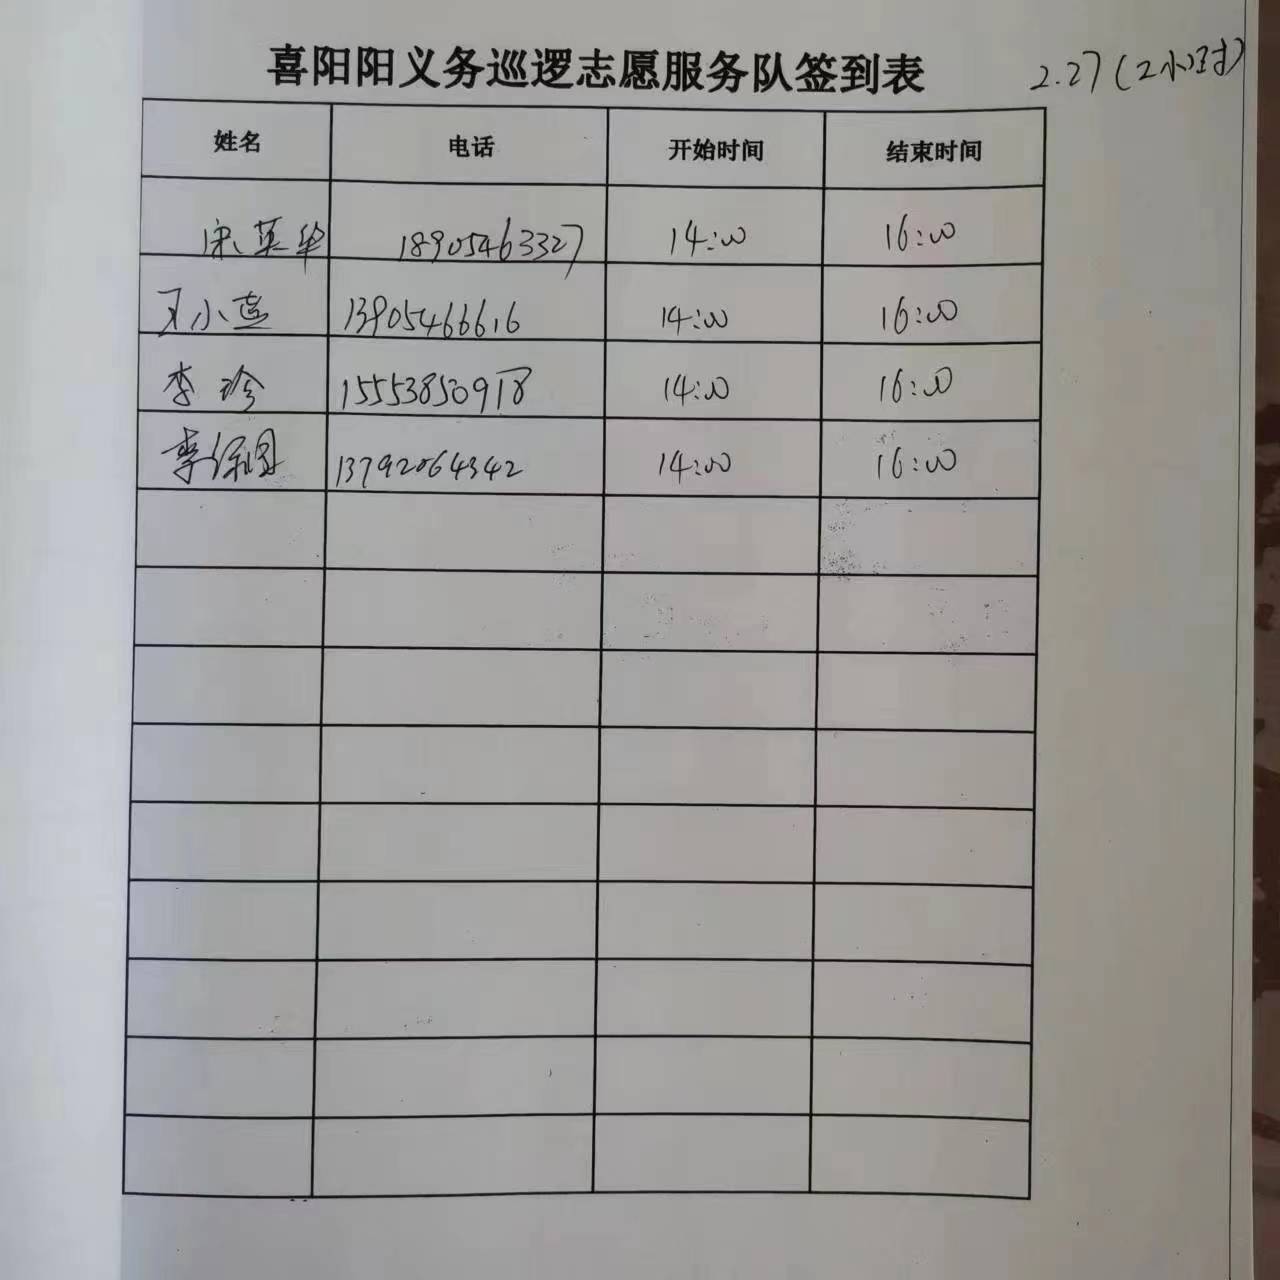 喜阳阳义务巡逻志愿服务队签到表
2.27(2小时)
姓名 电话 开始时间 结束时间
宋英华 18905463327 14:00 16:00
小 13905466616 14:00 16:00
李珍 15553850918 14:00 16:00
李保国 13792064342 14:00 16:00